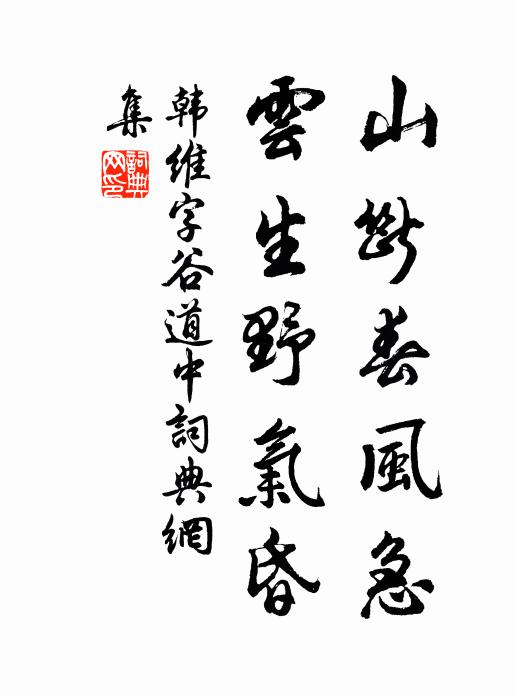 山断春風急
雲生野氣昏
韩維字谷道中詞典網
集
詞典
网印